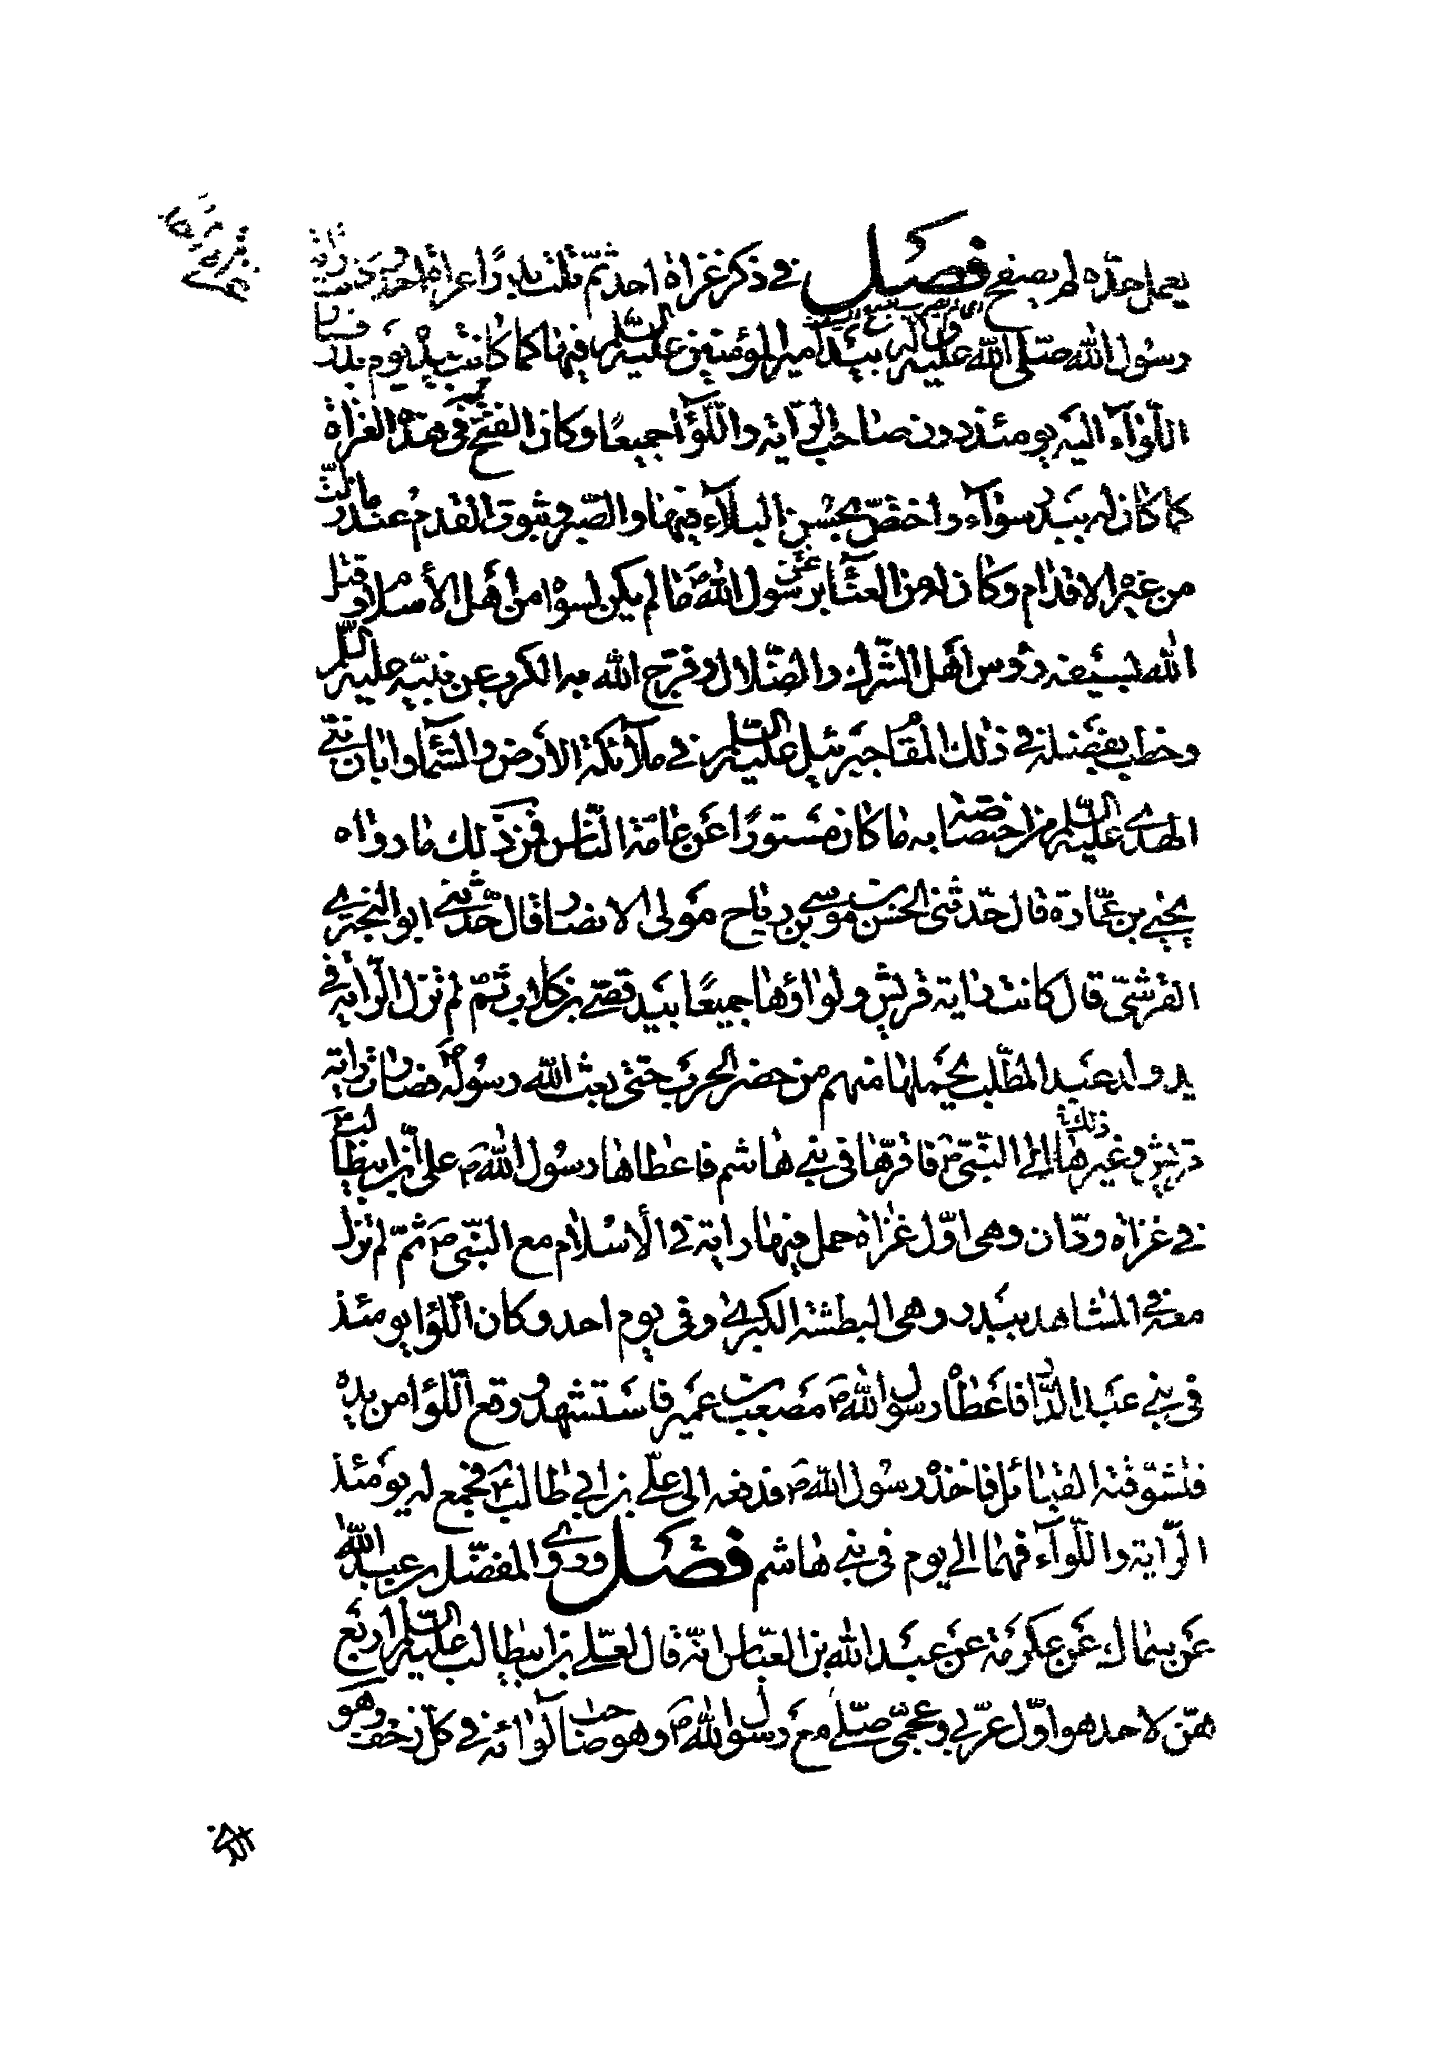 يعمل حدّه لم يصفح فصل في ذكر غزاة احد ثمّ تلت بدرًا غزاة احد وكانت راية
رسول الله صلّى الله عليه وآله بيد أمير المؤمنين عليه السّلم فيها كما كانت بيده يوم بدر فصار
اللّوآء اليه يومئذ دون صاحب الرّاية واللّوآء جميعًا وكان الفتح له في هذه الغزاة
كما كان له ببدر سوآء واختصّ بحسن البلآء فيها والصّبر وثبوت القدم عند ما زلّت
من غيره الاقدام وكان له من العنآء عن رسول الله ص ما لم يكن لسواه من أهل الأسلام وقتل
الله بسيفه رؤوس أهل الشّرك والضّلال وفرّج الله به الكرب عن نبيّه عليه السّلم
وخطب بفضله في ذلك المقام جبرئيل عليه السّلم في ملآئكة الارض والسّمآء وابان نبيّ
الهدى عليه السّلم من اختصاصه به ما كان مستورًا عن عامّة النّاس فمن ذلك ما رواه
يحيى بن عمّارة قال حدّثنى الحسن بن موسى بن رباح مولى الانصار قال حدّثنى ابو البخترى
القرشىّ قال كانت راية قريش ولواؤها جميعًا بيد قصىّ بن كلاب ثمّ لم تزل الرّاية في
يد ولد عبد المطّلب يحملها منهم من حضر الحرب حتّى بعث الله رسوله ص فصارت راية
قريش وغير ذلك ها الى النّبىّ ص فاقرّها في بنى هاشم فاعطاها رسول الله ص علىّ بن ابيطالب ع
في غزاة ودّان وهى اوّل غزاة حمل فيها راية في الأسلام مع النّبىّ ص ثمّ لم تزل
معه في المشاهد ببدر وهى البطشة الكبرى وفى يوم احد وكان اللّوآء يومئذ
فى بنى عبد الدّار فاعطاه رسول الله ص مصعب بن عمير فاستشهد ووقع اللّوآء من يده
فتشوّقته القبائل فاخذه رسول الله ص فدفعه الى علىّ بن ابي طالب ع فجمع له يومئذ
الرّاية واللّوآء فهما الى يوم فى بنى هاشم فصل وروى المفضّل بن عبد الله
عن سماك عن عكرمة عن عبد الله بن العبّاس انّه قال لعلىّ بن ابيطالب عليه السّلم اربع
هنّ لاحد هو اوّل عربىّ وعجمىّ صلّى مع رسول الله ص وهو صاحب لوائه في كلّ زحف وهو